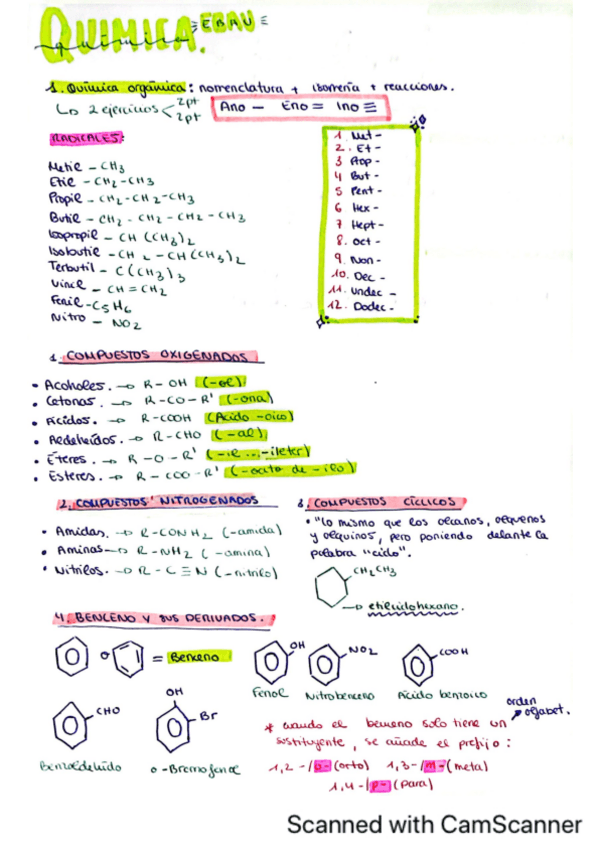 QUIMICA. ≡EBAU≡
química
1. Química orgánica: nomenclatura + isomería + reacciones.
↳ 2 ejercicios < 2pt 2pt
Ano — Eno = Ino ≡
RADICALES:
Metil - CH3
Etil - CH2-CH3
Propil - CH2-CH2-CH3
Butil - CH2 - CH2 - CH2 - CH3
Isopropil - CH (CH3)2
Isobutil - CH2 - CH(CH3)2
Terbutil - C(CH3)3
Vinil - CH = CH2
Fenil - C5H6
Nitro - NO2
1. Met -
2. Et -
3 Prop -
4 But -
5 Pent -
6 Hex -
7 Hept -
8. Oct -
9. Non -
10. Dec -
11. Undec -
12. Dodec -
1. COMPUESTOS OXIGENADOS
• Alcoholes. → R - OH (-ol)
• Cetonas. → R-CO-R' (-ona)
• Ácidos. → R-COOH (Ácido -oico)
• Aldehídos. → R-CHO (-al)
• Éteres. → R-O-R' (-il ... -iléter)
• Ésteres. → R - COO-R' (-oato de -ilo)
2. COMPUESTOS NITROGENADOS
• Amidas. → R-CONH2 (-amida)
• Aminas → R-NH2 (-amina)
• Nitrilos. → R-C≡N (-nitrilo)
3. COMPUESTOS CÍCLICOS
• "Lo mismo que los alcanos, alquenos
y alquinos, pero poniendo delante la
palabra "ciclo".
CH2CH3
→ etilciclohexano.
4. BENCENO Y SUS DERIVADOS.
o = Benceno
OH
NO2
COOH
Fenol Nitrobenceno Ácido benzoico
CHO
OH
Br
Benzaldehído o-Bromofenol
orden alfabet.
* cuando el benceno solo tiene un
sustituyente, se añade el prefijo:
1,2 -/o-(orto) 1,3-/m-(meta)
1,4-/p-(para)
Scanned with CamScanner